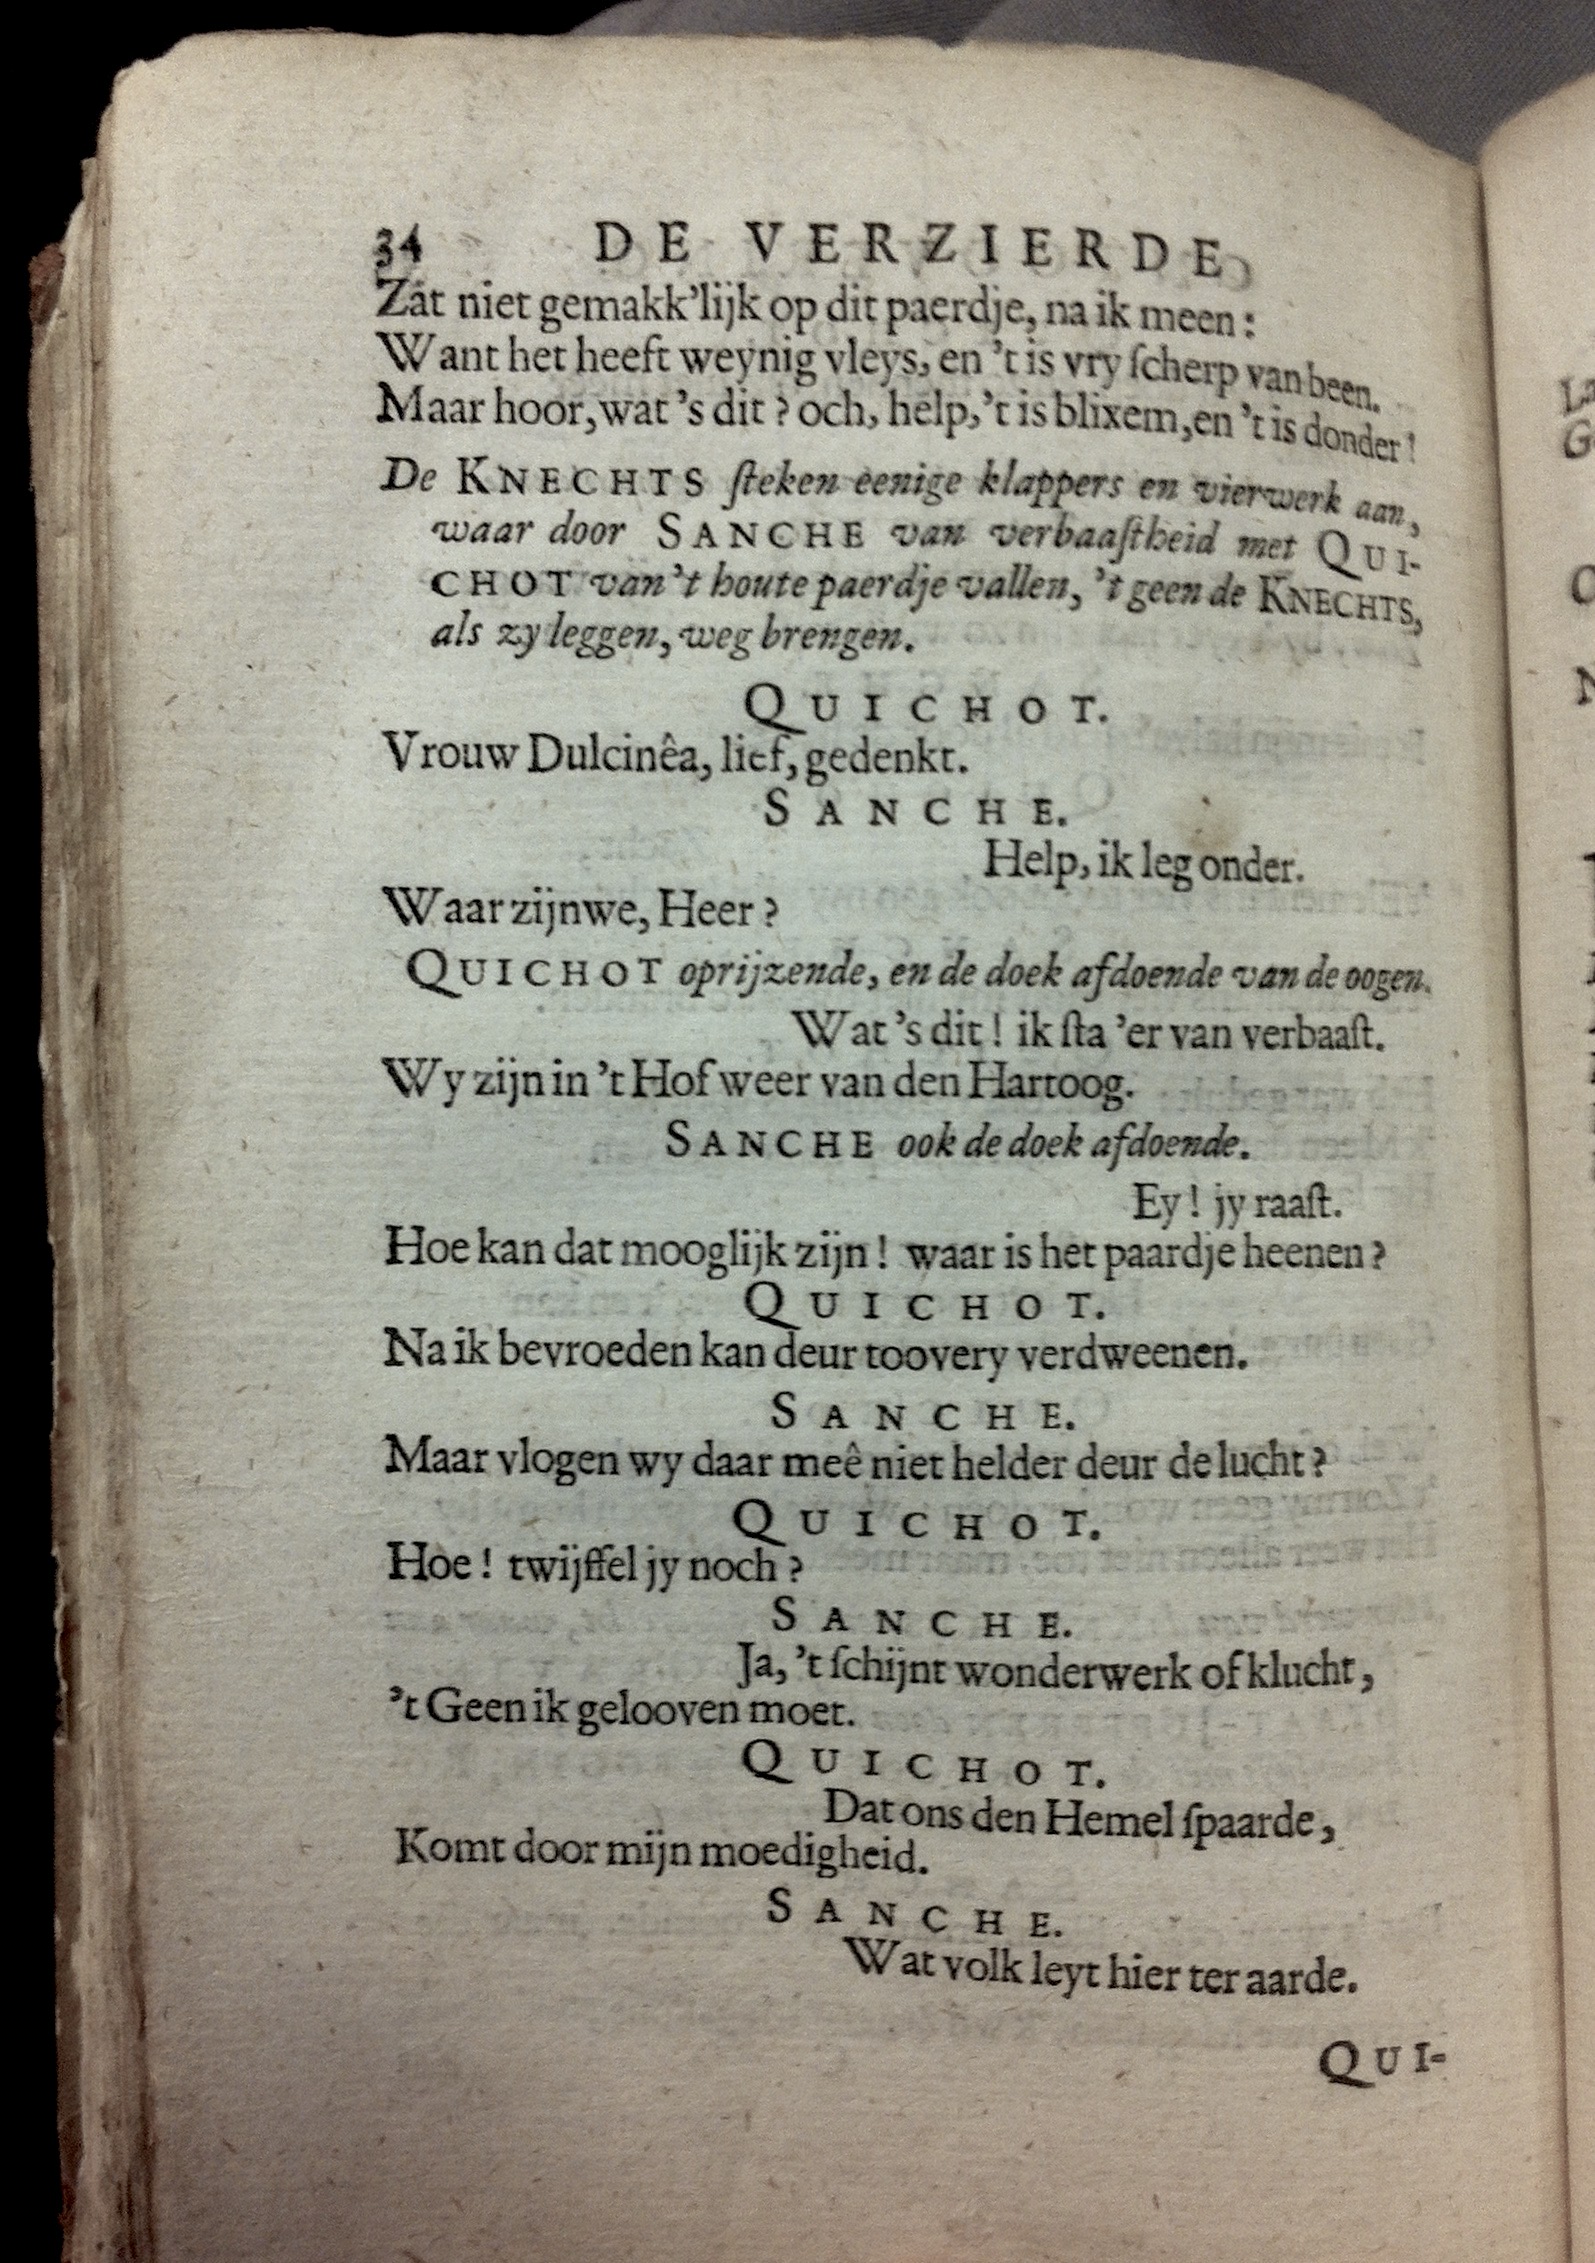 34 DE VERZIERDE
Zat niet gemakk'lijk op dit paerdje, na ik meen:
Want het heeft weynig vleys, en 't is vry ſcherp van been.
Maar hoor, wat 's dit? och, help, 't is blixem, en 't is donder!
De KNECHTS ſteken eenige klappers en vierwerk aan,
waar door SANCHE van verbaaſtheid met QUI-
CHOT van 't houte paerdje vallen, 't geen de KNECHTS,
als zy leggen, weg brengen.
QUICHOT.
Vrouw Dulcinêa, lief, gedenkt.
SANCHE.
Help, ik leg onder.
Waar zijnwe, Heer?
QUICHOT oprijzende, en de doek afdoende van de oogen.
Wat 's dit! ik ſta 'er van verbaaſt.
Wy zijn in 't Hof weer van den Hartoog.
SANCHE ook de doek afdoende.
Ey! jy raaſt.
Hoe kan dat mooglijk zijn! waar is het paardje heenen?
QUICHOT.
Na ik bevroeden kan deur toovery verdweenen.
SANCHE.
Maar vlogen wy daar meê niet helder deur de lucht?
QUICHOT.
Hoe! twijffel jy noch?
SANCHE.
Ja, 't ſchijnt wonderwerk of klucht,
't Geen ik gelooven moet.
QUICHOT.
Dat ons den Hemel ſpaarde,
Komt door mijn moedigheid.
SANCHE.
Wat volk leyt hier ter aarde.
QUI-